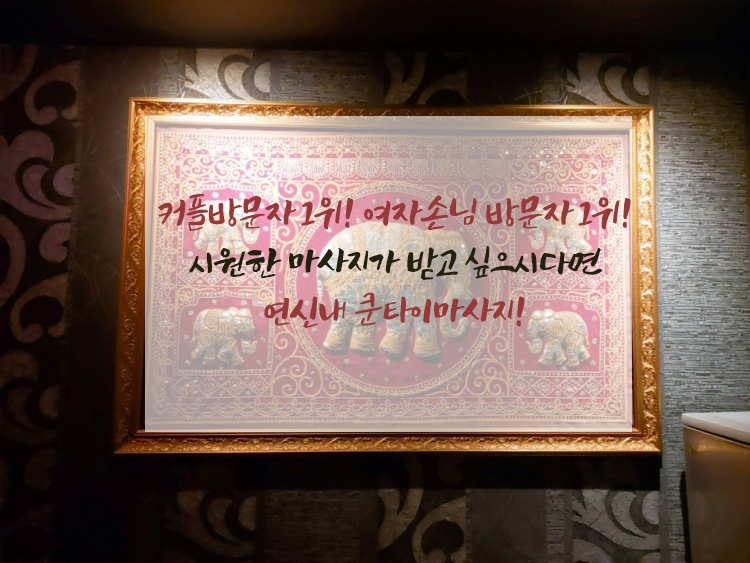 커플방문자 1위! 여자손님 방문자 1위!
시원한 마사지가 받고 싶으시다면
연신내 쿤타이마사지!